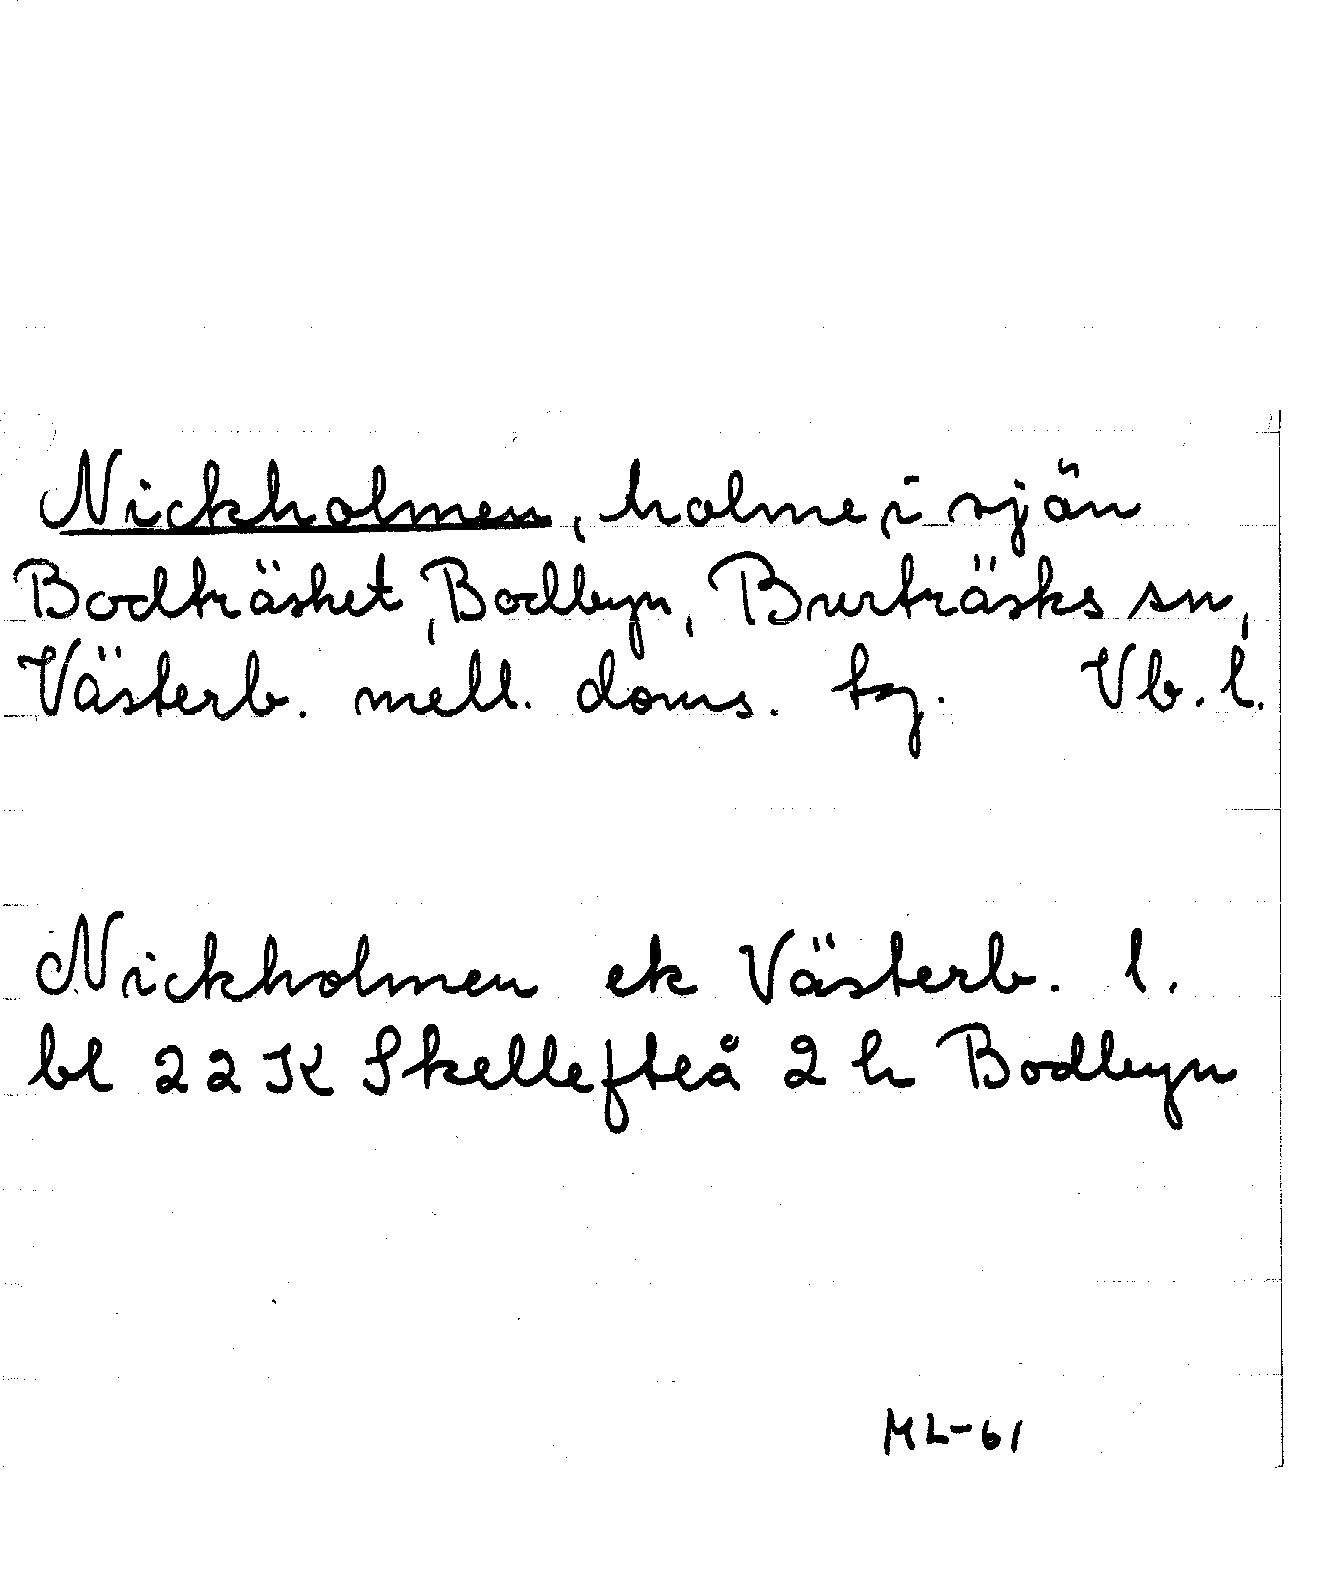 Nickholmen, holme i sjön
Bodträsket, Bodbyn, Burträsks sn,
Västerb. mell. doms. tg. Vb. l.
Nickholmen ek Västerb. l.
bl 22 K Skellefteå 2 h Bodbyn
ML-61